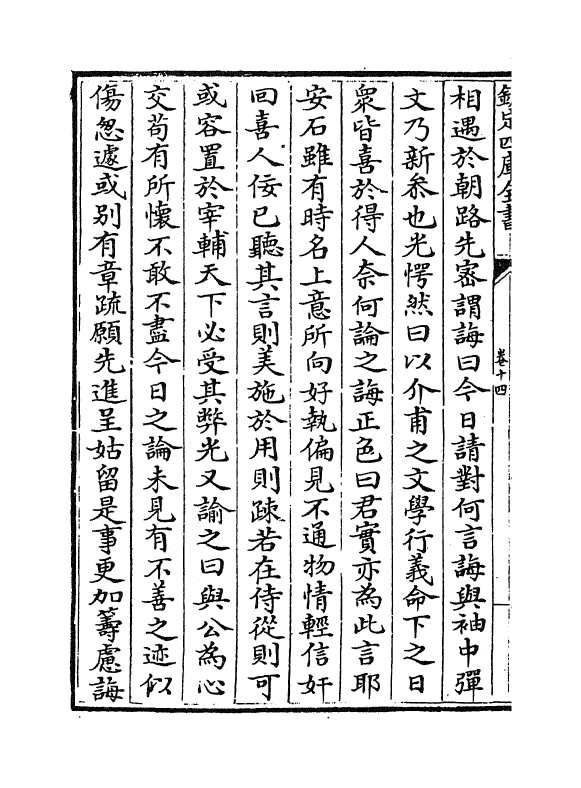 欽定四庫全書
卷十四
相遇於朝路先宻謂誨曰今日請對何言誨與袖中彈
文乃新叅也光愕然曰以介甫之文學行義命下之日
衆皆喜於得人奈何論之誨正色曰君實亦為此言耶
安石雖有時名上意所向好執偏見不通物情輕信奸
回喜人佞已聽其言則美施於用則疎若在侍從則可
或容置於宰輔天下必受其弊光又諭之曰與公為心
交茍有所懷不敢不盡今日之論未見有不善之迹似
傷怱遽或别有章疏願先進呈姑留是事更加籌慮誨